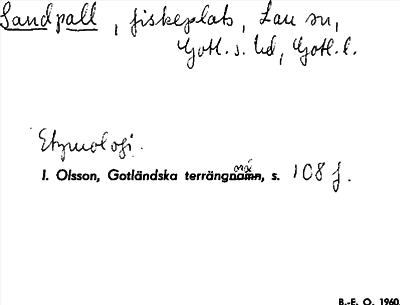 Sandpall, fiskeplats, Lau sn,
Gotl. s. hd, Gotl. l.
Etymologi.
I. Olsson, Gotländska terrängnamn, s. 108 f.
B.-E. O. 1960